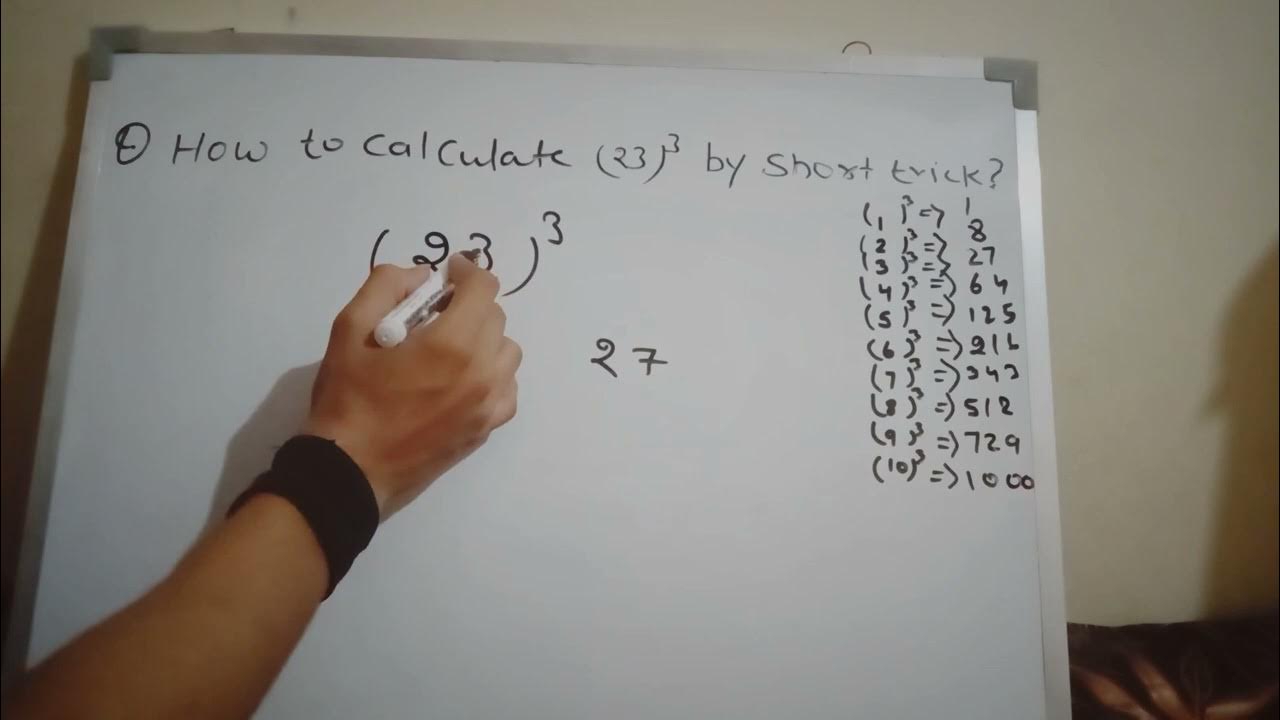 How to calculate (23)³ by short trick?
(23)³
27
(1)³ => 1
(2)³ => 8
(3)³ => 27
(4)³ => 64
(5)³ => 125
(6)³ => 216
(7)³ => 343
(8)³ => 512
(9)³ => 729
(10)³ => 1000